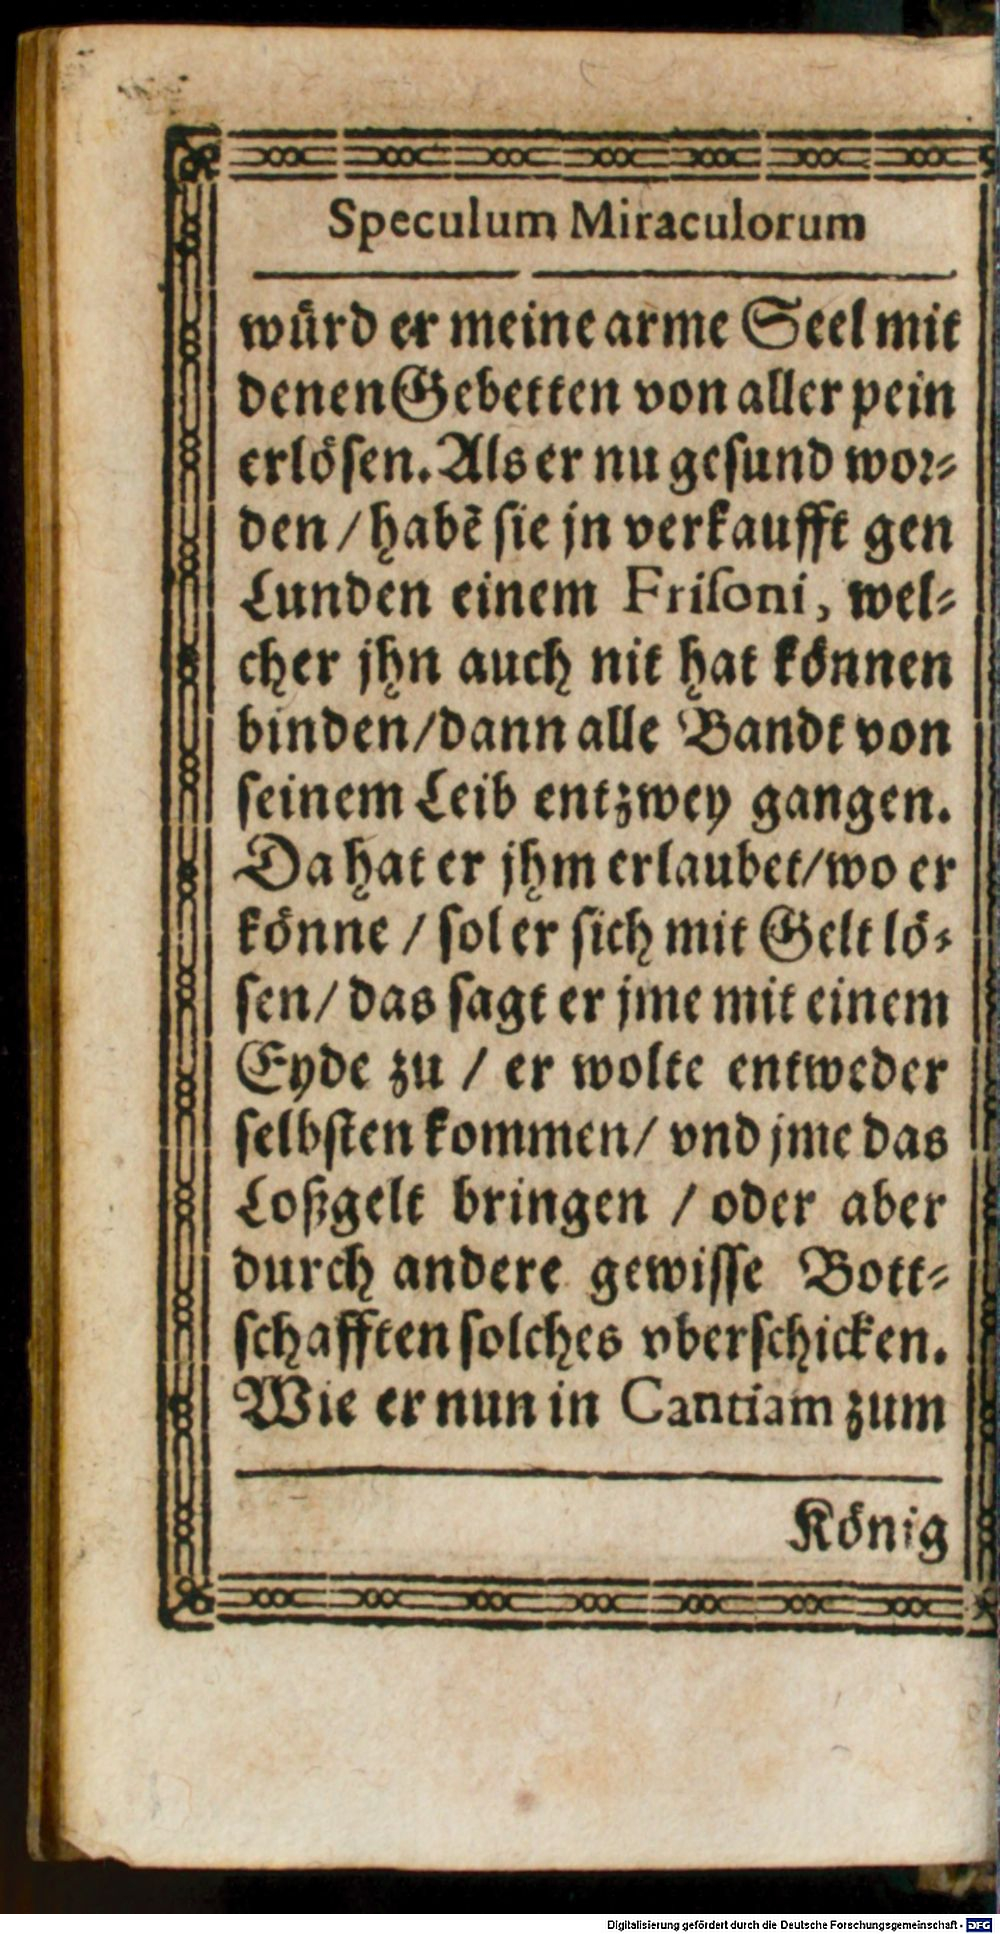 Speculum Miraculorum
wuͤrd er meine arme Seel mit
denen Gebetten von aller pein
erloͤsen. Als er nu gesund wor⸗
den / habẽ sie jn verkaufft gen
Lunden einem Frisoni, wel⸗
cher jhn auch nit hat koͤnnen
binden/dann alle Bandt von
seinem Leib entzwey gangen.
Da hat er jhm erlaubet/wo er
koͤnne / sol er sich mit Gelt loͤ⸗
sen/ das sagt er jme mit einem
Eyde zu / er wolte entweder
selbsten kommen/ vnd jme das
Loßgelt bringen / oder aber
durch andere gewisse Bott⸗
schafften solches vberschicken.
Wie er nun in Cantiam zum
Koͤnig
Digitalisierung gefördert durch die Deutsche Forschungsgemeinschaft - DFG